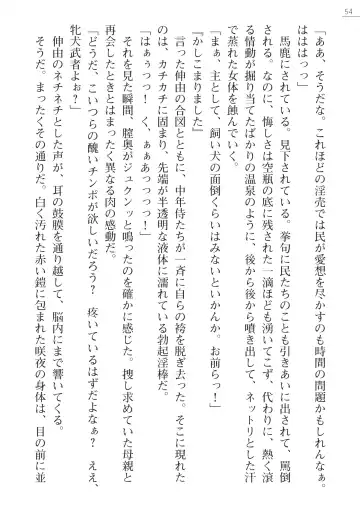 54
「ああ、そうだな。これほどの淫売では民が愛想を尽かすのも時間の問題かもしれんなぁ。
はははっっ」
馬鹿にされている。見下されている。挙句に民たちのことも引きあいに出されて、罵倒
される。なのに、悔しさは空瓶の底に残された一滴ほども湧いてこず、代わりに、熱く滾
る情動が掘り当てたばかりの温泉のように、後から後から噴き出して、ネットリとした汗
で蒸れた女体を蝕んでいく。
「まぁ、主として、飼い犬の面倒くらいはみないといかんか。お前らっ！」
『かしこまりました』
言った伸由の合図とともに、中年侍たちが一斉に自らの袴を脱ぎ去った。そこに現れた
のは、カチカチに固まり、先端が半透明な液体に濡れている勃起淫棒だ。
「はぁぅっっ！　く、ぁぁあっっっ！」
それを見た瞬間、膣奥がジュクンッと鳴ったのを確かに感じた。捜し求めていた母親と
再会したときとはまったく異なる肉の感動だ。
「どうだ、こいつらの醜いチンポが欲しいんだろう？　疼いているはずだよなぁ？　ええ、
牝犬武者よぉ？」
伸由のネチネチとした声が、耳の鼓膜を通り越して、脳内にまで響いてくる。
そうだ。まったくその通りだ。白く汚れた赤い鎧に包まれた咲夜の身体は、目の前に並